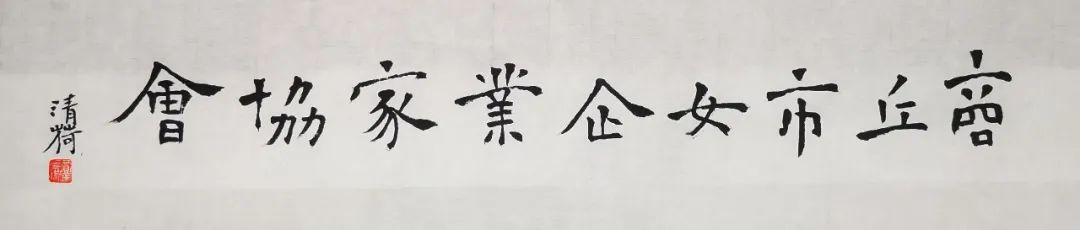 商丘市女企業家協會
清荷